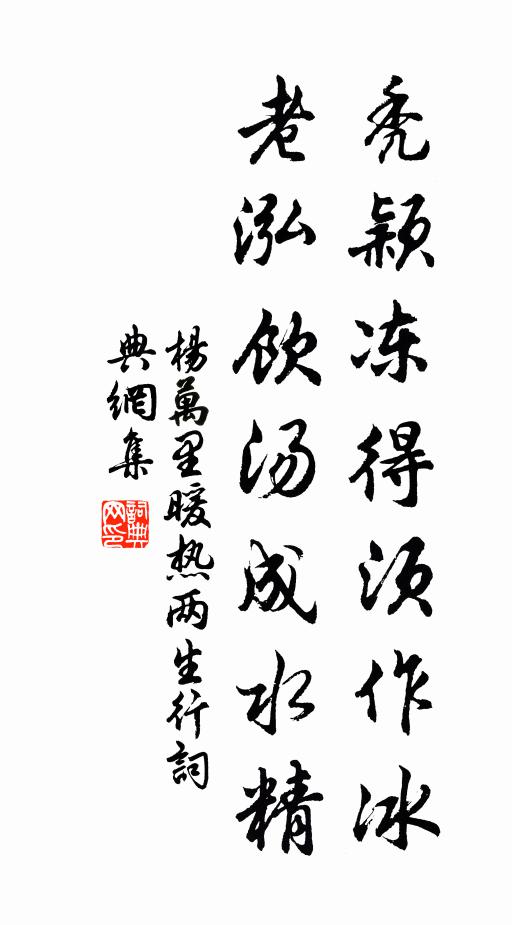 秃颖冻得须作冰
老泓饮汤成水精
楊萬里暖热两生行詞
典網集
詞典网印